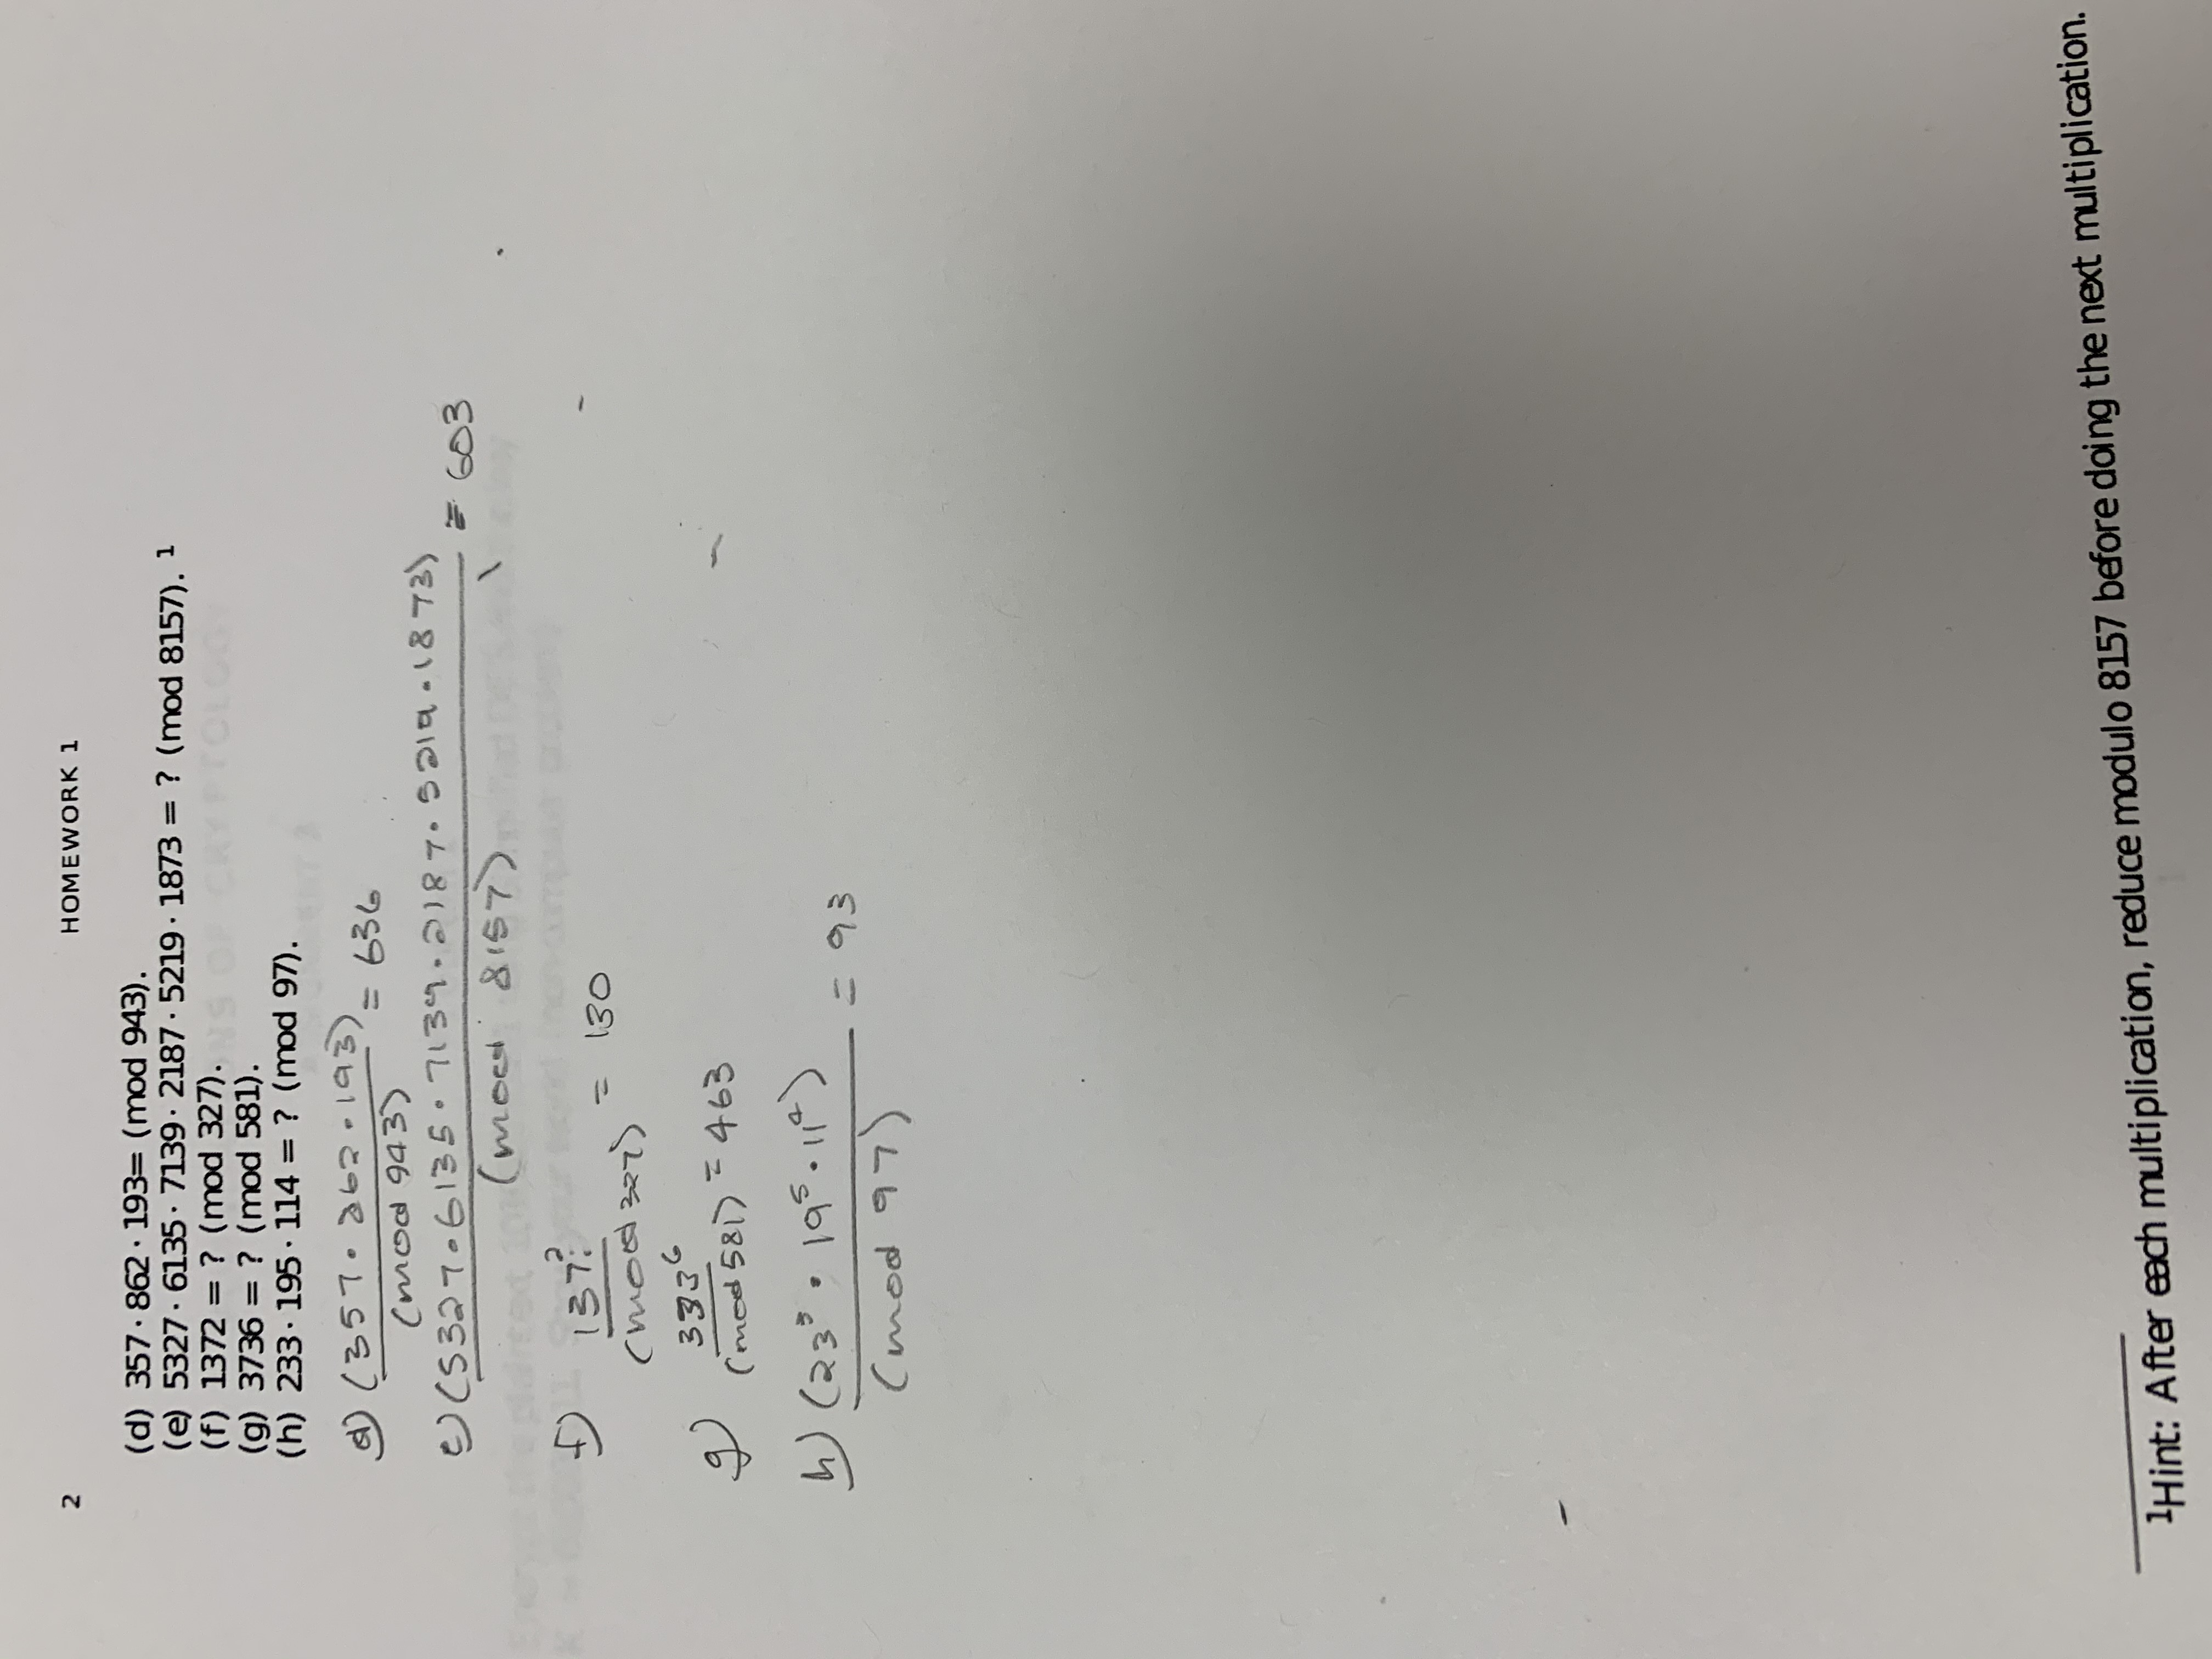 2 HOMEWORK 1
(d) 357 · 862 · 193= (mod 943).
(e) 5327 · 6135 · 7139 · 2187 · 5219 · 1873 = ? (mod 8157). 1
(f) 1372 = ? (mod 327).
(g) 3736 = ? (mod 581).
(h) 233 · 195 · 114 = ? (mod 97).
d) (357 · 862 · 193) = 636
(mod 943)
e) (5327 · 6135 · 7139 · 2187 · 5219 · 1873) = 603
(mod 8157)
f) 137² = 130
(mod 327)
g) 373⁶ = 463
(mod 581)
h) (23³ · 19⁵ · 11⁴) = 93
(mod 97)
1Hint: After each multiplication, reduce modulo 8157 before doing the next multiplication.